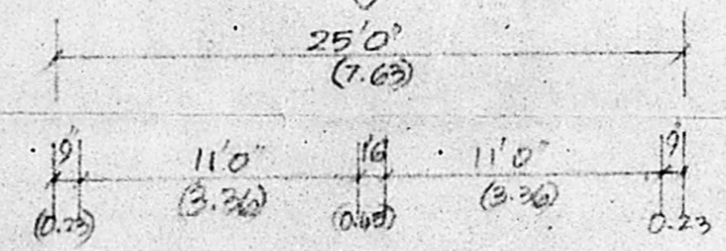 25'0"
(7.63)
9" 11'0" 1'6 11'0" 9"
(0.23) (3.36) (0.45) (3.36) 0.23